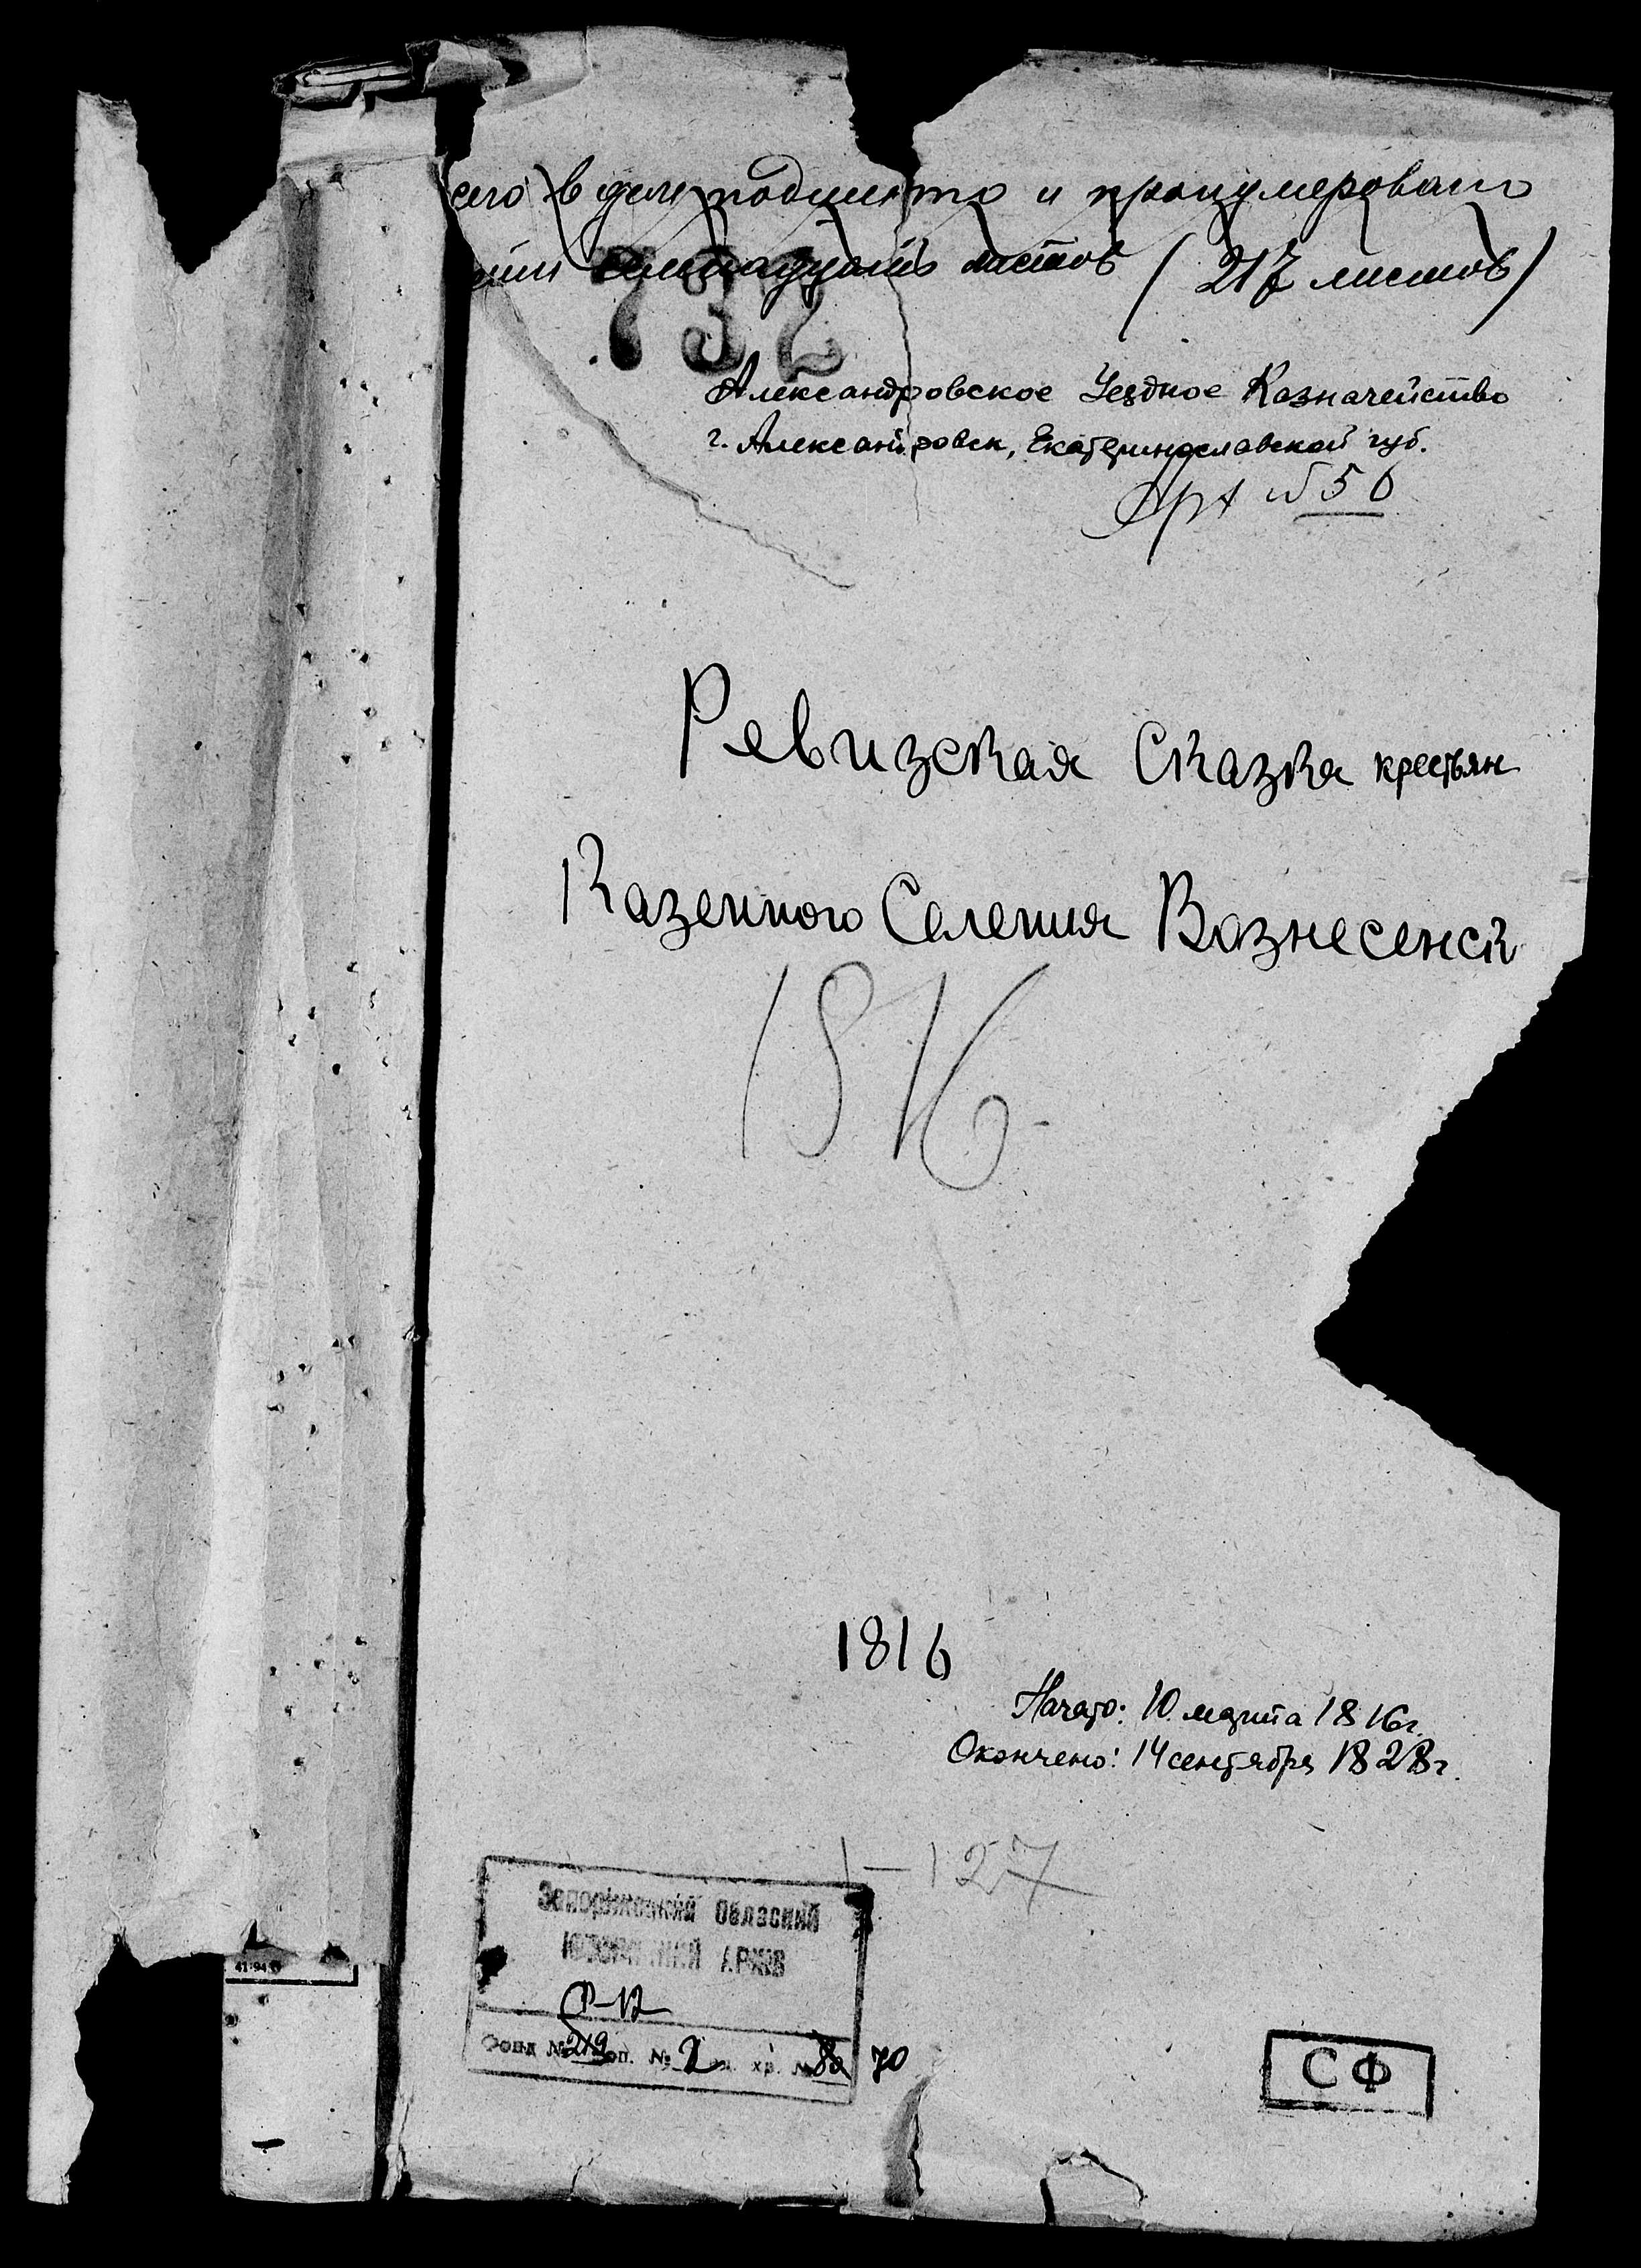 сего в деле подшито и пронумеровано
семнадцать листов (217 листов)
732
Александровское Уездное Казначейство
г. Александровск, Екатеринославской губ.
Арх №56
Ревизская Сказка крестьян
Казенного Селения Вознесенск
1816
1816
Начато: 10 марта 1816г.
Окончено: 14 сентября 1828г.
1-127
Запоріжський Обласний
АРХІВ
Фонд № 219 оп. № 2 хр. № 70
41-94
СФ